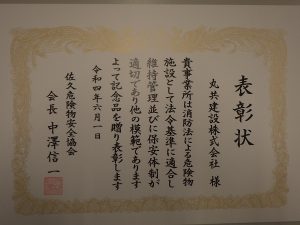 表彰状
丸共建設株式会社 様
貴事業所は消防法による危険物
施設として法令基準に適合し
維持管理並びに保安体制が
適切であり他の模範であります
よって記念品を贈り表彰します
令和四年六月一日
佐久危険物安全協会
会長 中澤信一